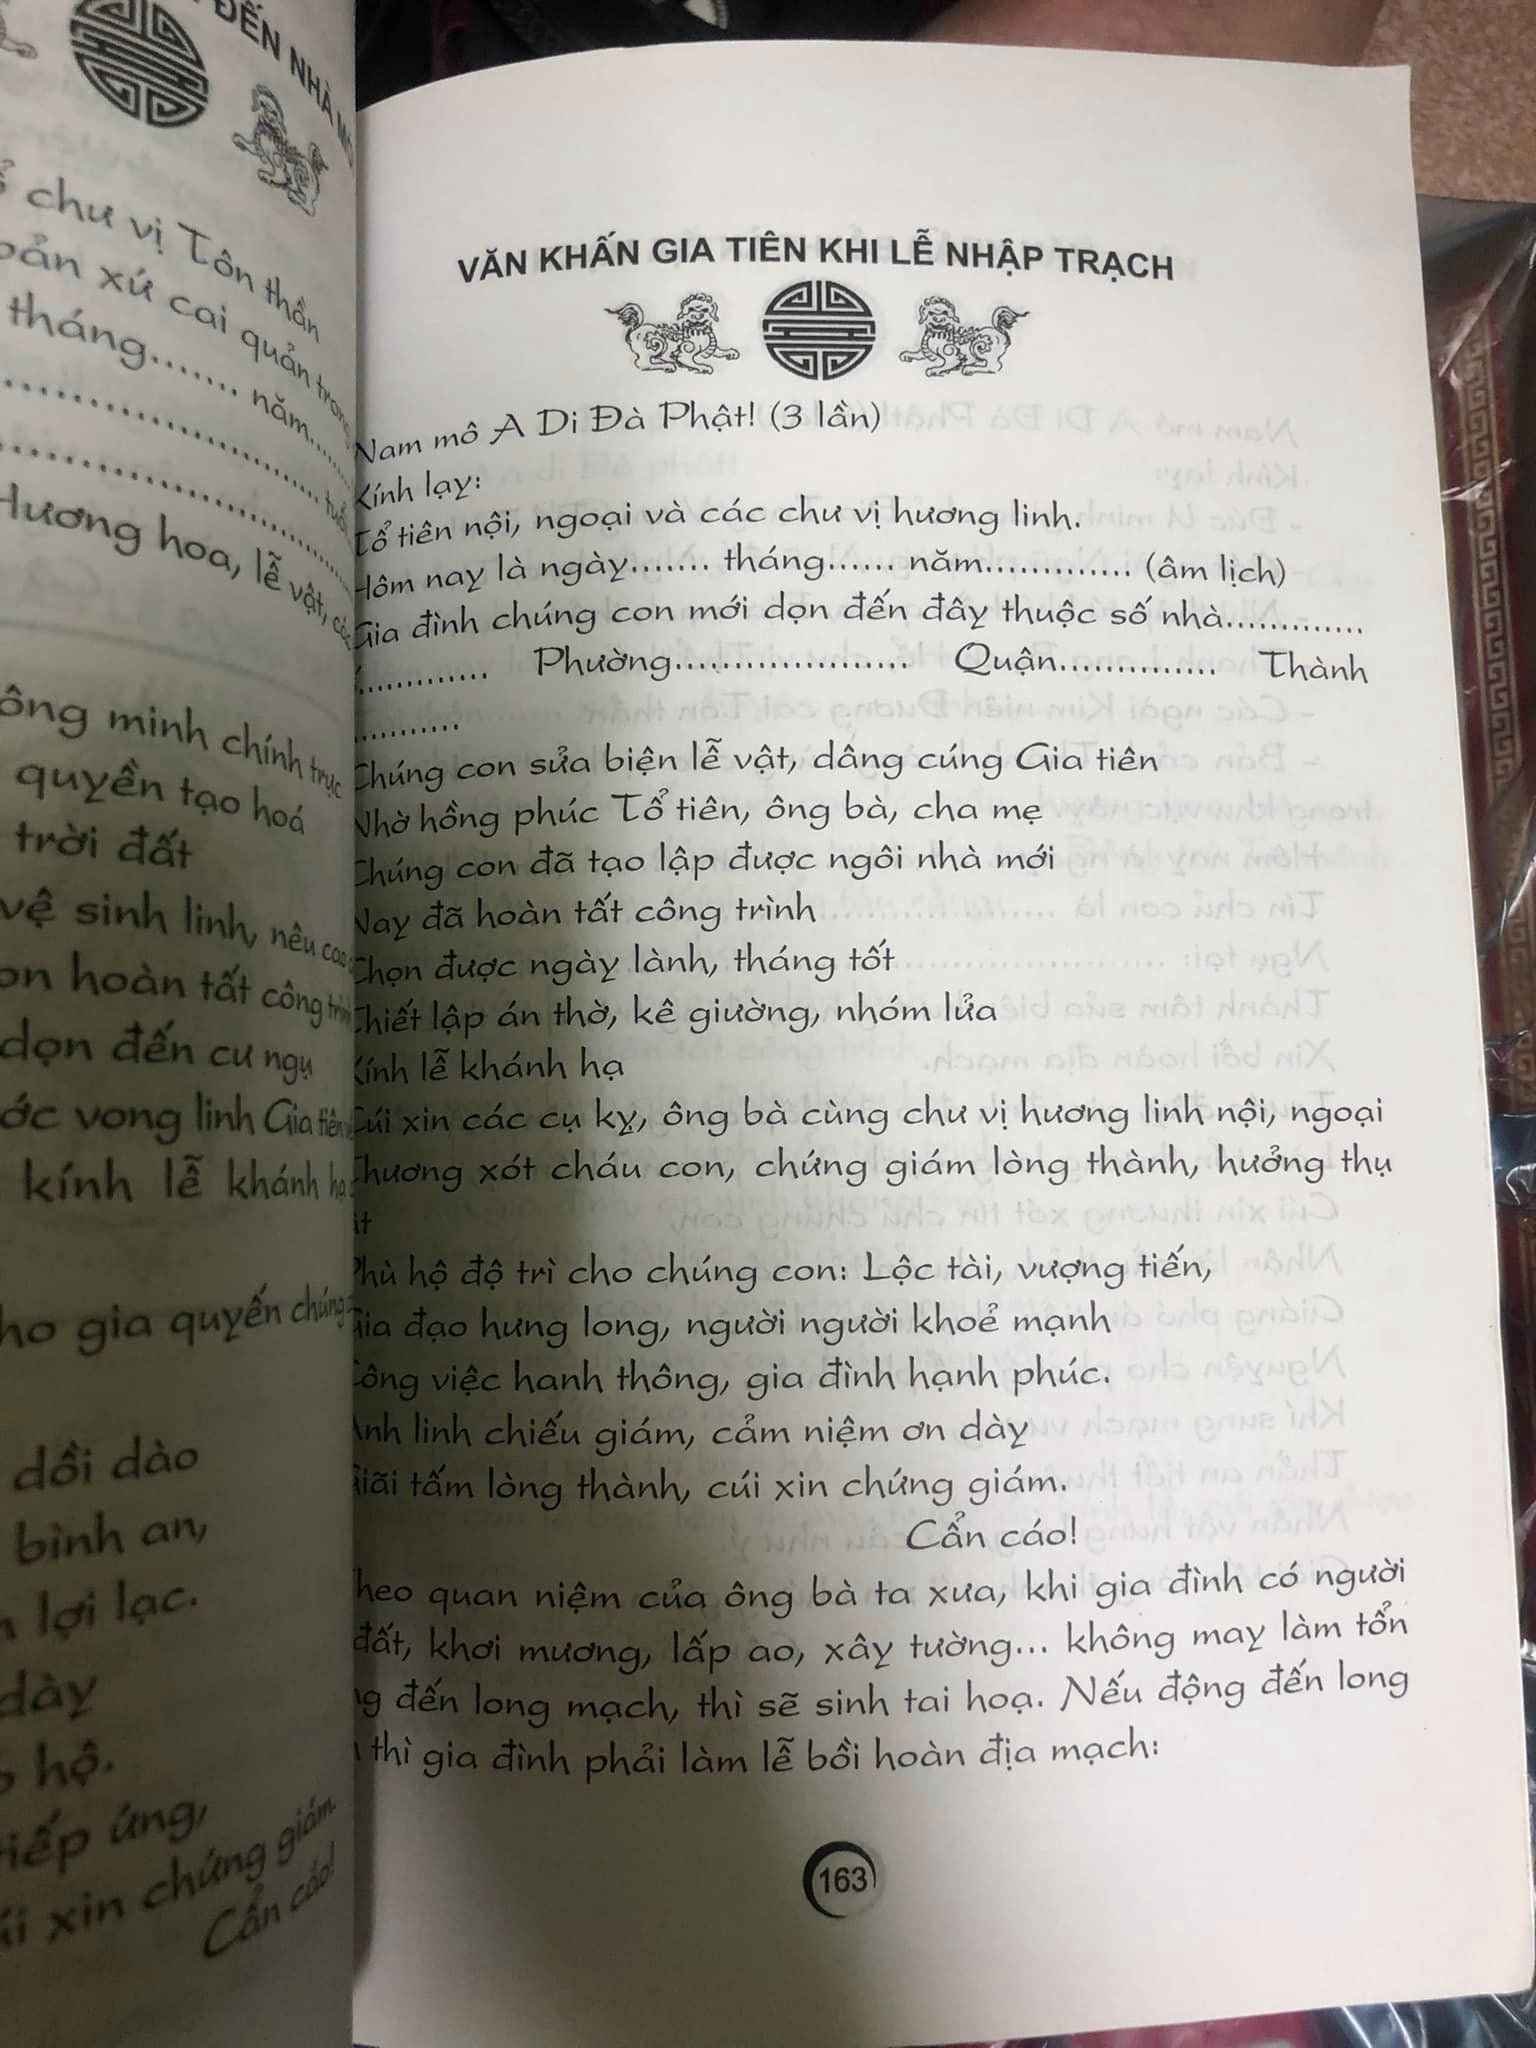 ĐẾN NHÀ
chư vị Tôn thần
xứ cai quản trong
tháng....... năm.......
tuổi
Hương hoa, lễ vật, các
minh chính trực
quyền tạo hoá
trời đất
vệ sinh linh, nêu cao
hoàn tất công trình
dọn đến cư ngụ
vong linh Gia tiên
kính lễ khánh hạ
gia quyến chúng
dồi dào
bình an,
lợi lạc.
dày
hộ.
tiếp ứng,
xin chứng giám.
Cẩn cáo!
VĂN KHẤN GIA TIÊN KHI LỄ NHẬP TRẠCH
Nam mô A Di Đà Phật! (3 lần)
Kính lạy:
Tổ tiên nội, ngoại và các chư vị hương linh.
Hôm nay là ngày....... tháng...... năm............. (âm lịch)
Gia đình chúng con mới dọn đến đây thuộc số nhà.............
............. Phường...................... Quận............... Thành
...........
Chúng con sửa biện lễ vật, dâng cúng Gia tiên
Nhờ hồng phúc Tổ tiên, ông bà, cha mẹ
Chúng con đã tạo lập được ngôi nhà mới
Nay đã hoàn tất công trình
Chọn được ngày lành, tháng tốt
Thiết lập án thờ, kê giường, nhóm lửa
Kính lễ khánh hạ
Cúi xin các cụ kỵ, ông bà cùng chư vị hương linh nội, ngoại
Thương xót cháu con, chứng giám lòng thành, hưởng thụ
Phù hộ độ trì cho chúng con: Lộc tài, vượng tiến,
Gia đạo hưng long, người người khoẻ mạnh
Công việc hanh thông, gia đình hạnh phúc.
Anh linh chiếu giám, cảm niệm ơn dày
Giãi tấm lòng thành, cúi xin chứng giám.
Cẩn cáo!
Theo quan niệm của ông bà ta xưa, khi gia đình có người
đất, khơi mương, lấp ao, xây tường... không may làm tổn
đến long mạch, thì sẽ sinh tai hoạ. Nếu động đến long
thì gia đình phải làm lễ bồi hoàn địa mạch:
163